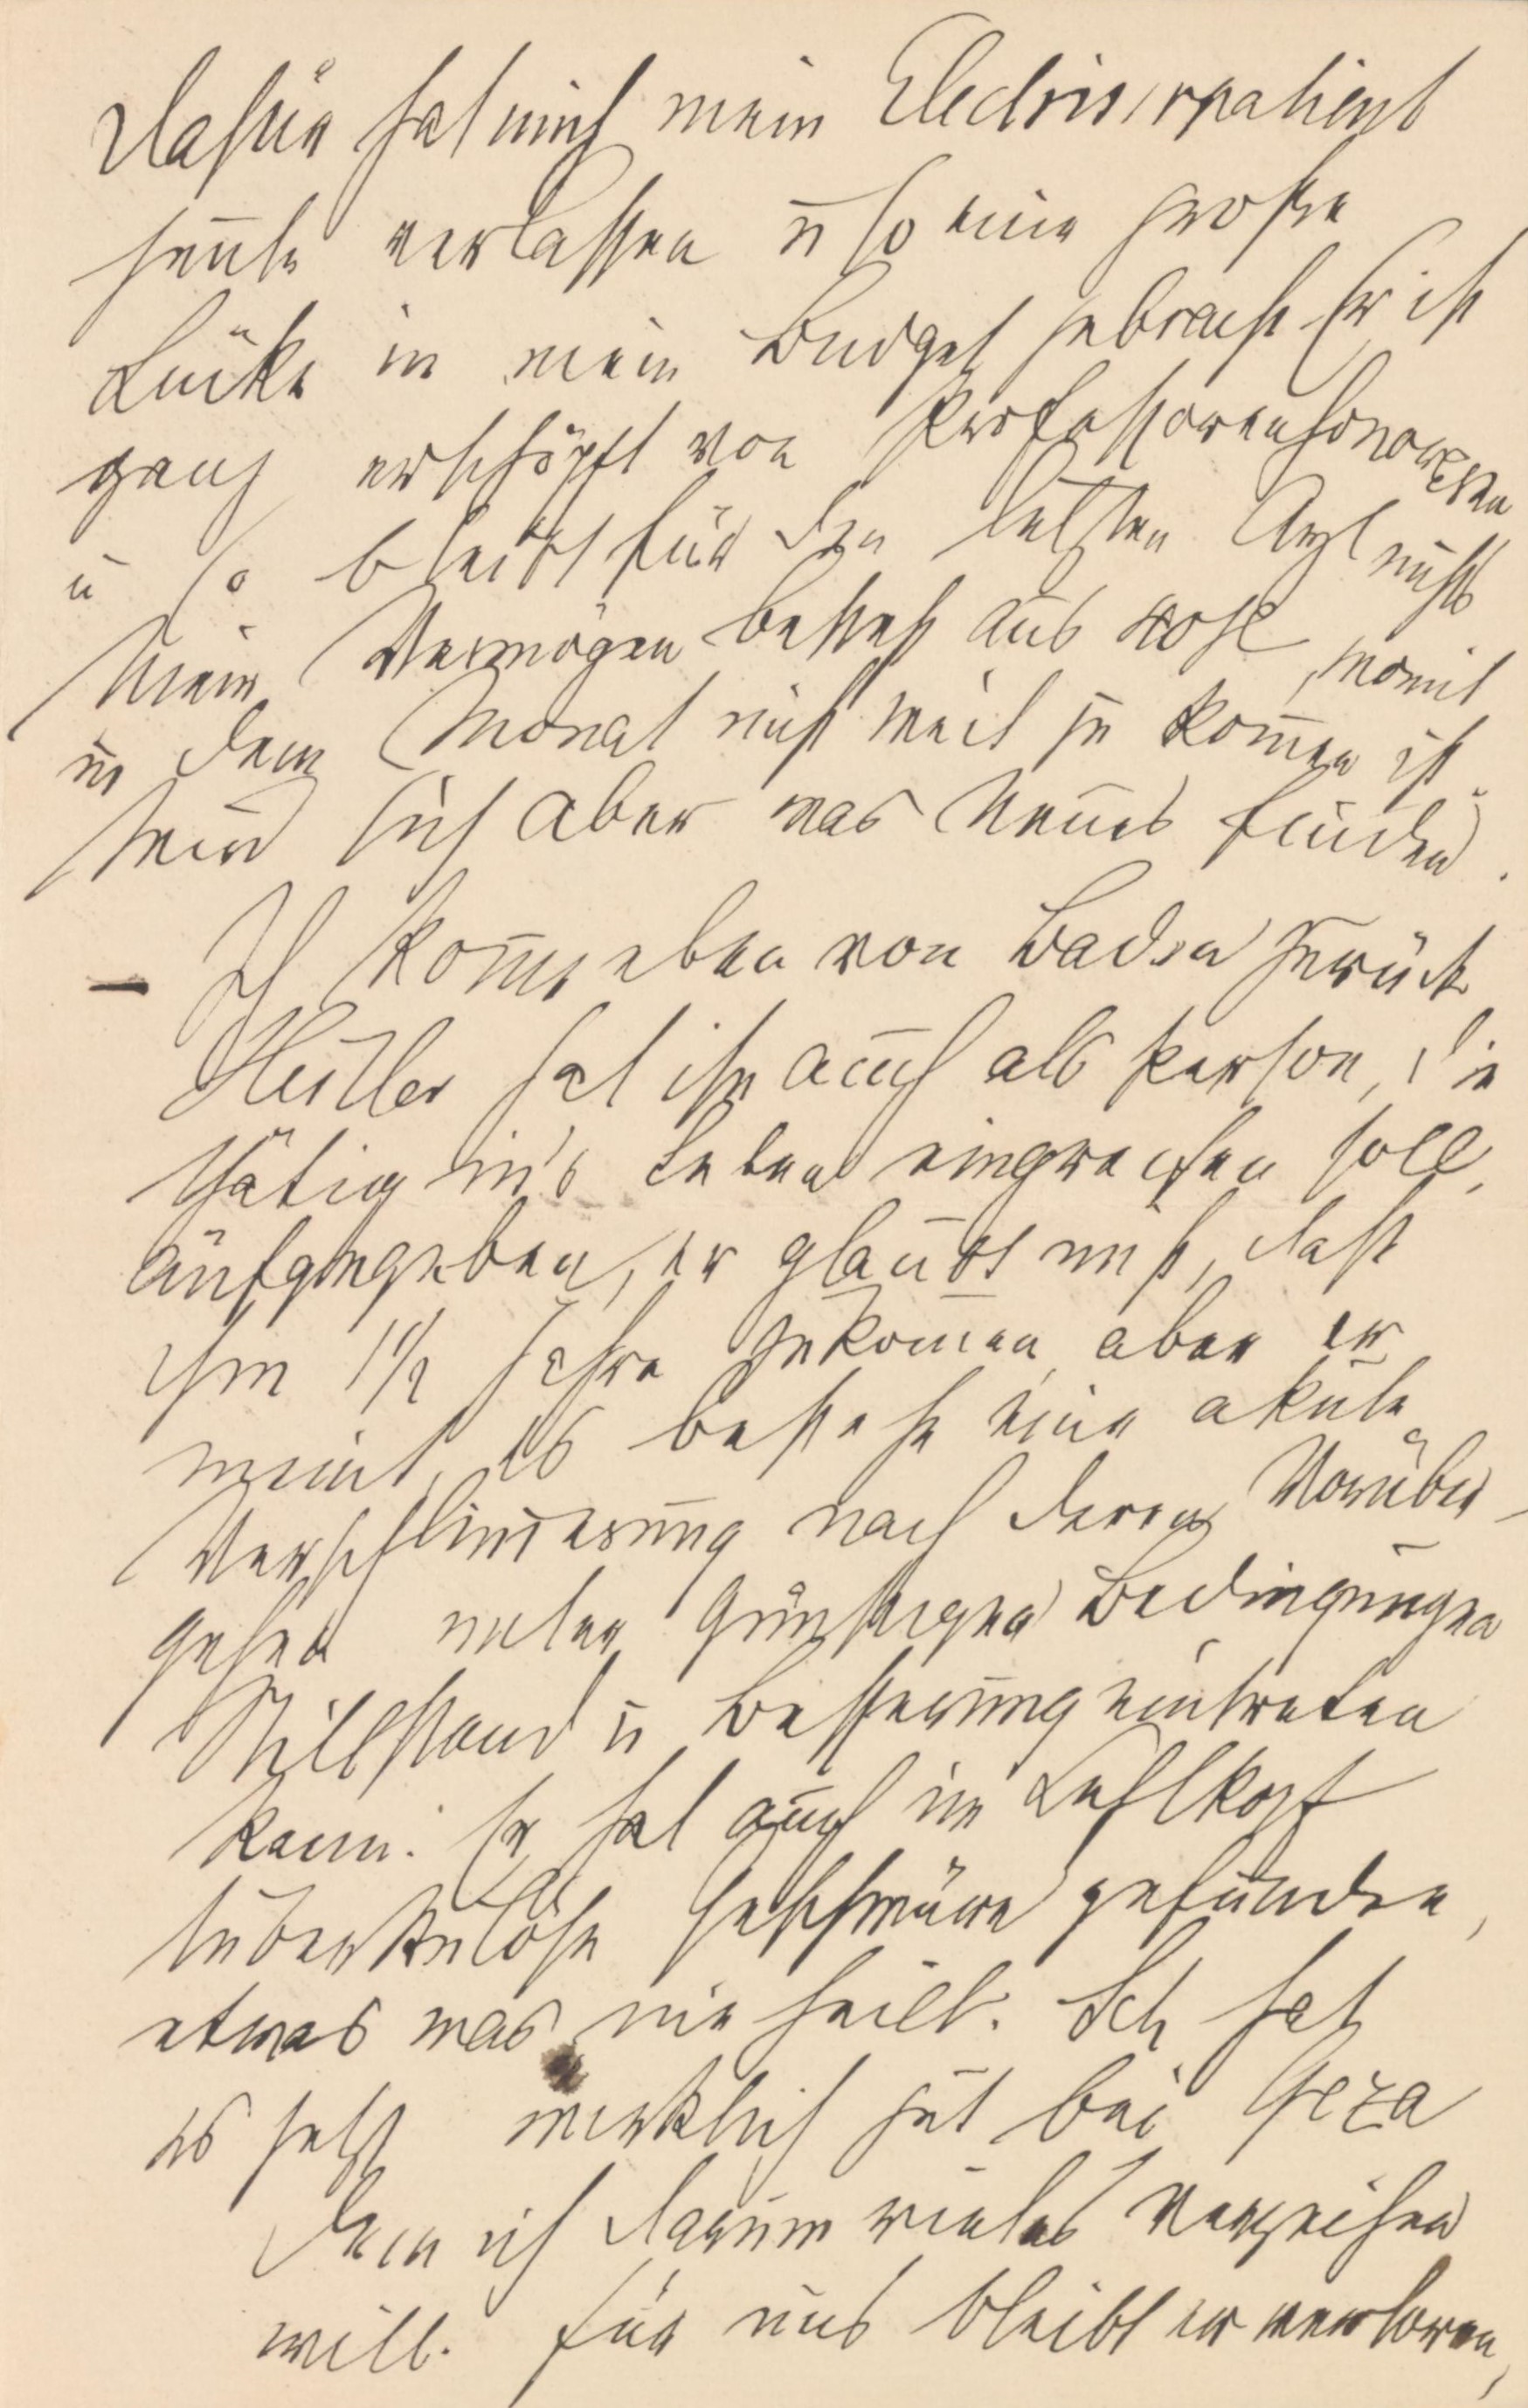 Dafür hat mich mein Electrisirpatient
heute verlassen u so eine große
Lücke in mein Budget gebracht Er ist
ganz erschöpft von Professorenhonoraren
u so bleibt für den letzten Arzt nichts
Mein Vermögen besteht aus womit
in dem Monat nicht weit zu kom̅en ist.
Wird sich aber was Neues finden.
– Ich kom̅e eben von Baden zurück
hat ihn auch als Person, die
thätig in's Leben eingreifen soll,
aufgegeben, er glaubt nicht, daß
ihm 1½ Jahre zukom̅en, aber er
meint, es bestehe eine akute
Verschlim̅erung nach deren Vorüber-
gehen unter günstigen Bedingungen
Stillstand u Besserung eintreten
kann. Er hat auch im Kehlkopf
tuberkulöse Geschwüre gefunden,
etwas was nie heilt. Sch hat
es jetzt wirklich gut bei Geza
dem ich darum vieles verzeihen
will. Für uns bleibt er verloren,